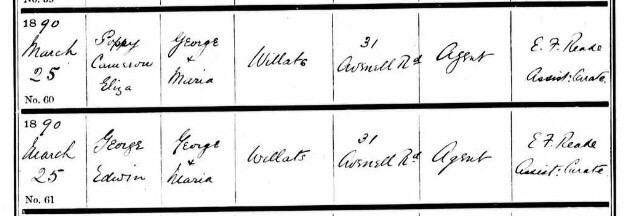 1890
March
25
No. 60
Poppy
Cameron
Eliza
George
&
Maria
Willats
31
Avenell Rd
Agent
E. F. Reade
Assist: Curate
1890
March
25
No. 61
George
Edwin
George
&
Maria
Willats
31
Avenell Rd
Agent
E F. Reade
Assist: Curate